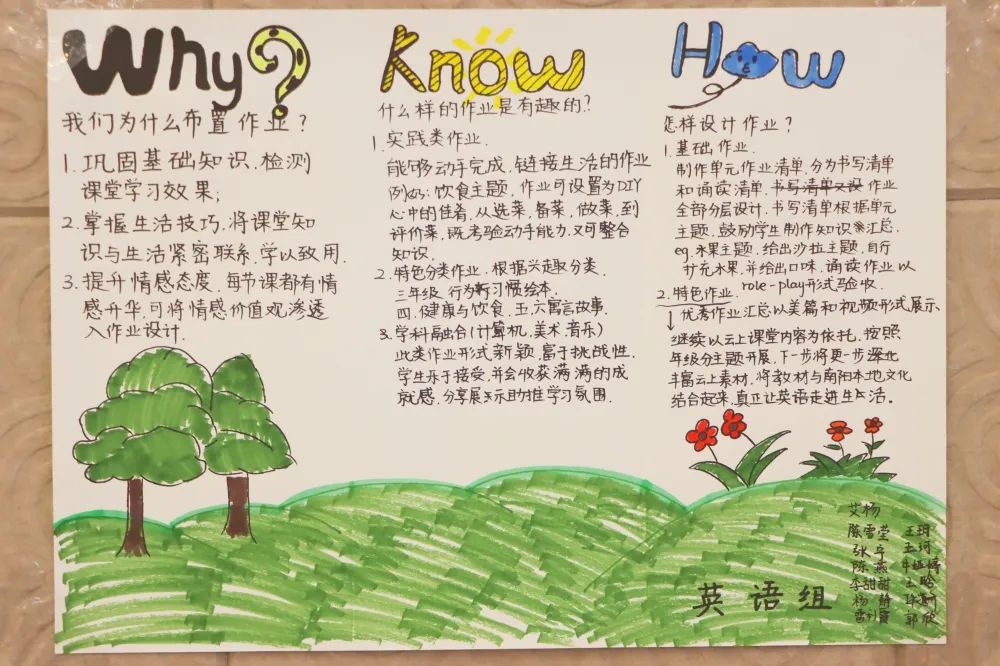 Why?
我们为什么布置作业?
1.巩固基础知识.检测
课堂学习效果;
2.掌握生活技巧,将课堂知
识与生活紧密联系,学以致用.
3.提升情感态度.每节课都有情
感升华,可将情感价值观渗透
入作业设计.
Know
什么样的作业是有趣的?
1.实践类作业.
能够动手完成,链接生活的作业
例如:饮食主题.作业可设置为DIY
心中的佳肴.从选菜,备菜,做菜,到
评价菜,既考验动手能力,又可整合
知识.
2.特色分类作业.根据兴趣分类.
三年级 行为习惯绘本.
四.健康与饮食.五.六寓言故事.
3.学科融合(计算机,美术 音乐)
此类作业形式新颖,富于挑战性.
学生乐于接受,并会收获满满的成
就感,分享展示助推学习氛围.
How
怎样设计作业?
1.基础作业.
制作单元作业清单,分为书写清单
和诵读清单,书写清单又设作业
全部分层设计.书写清单根据单元
主题,鼓励学生制作知识汇总.
eg.水果主题,给出沙拉主题,自行
扩充水果,并给出口味.诵读作业以
role-play形式验收.
2.特色作业.
优秀作业汇总以美篇和视频形式展示
继续以云上课堂内容为依托,按照
年级分主题开展,下一步将更一步深化
丰富云上素材,将教材与南阳本地文化
结合起来,真正让英语走进生活。
艾杨
陈雪莹 王玥
张
陈燕
李甜甜
杨静
英语组